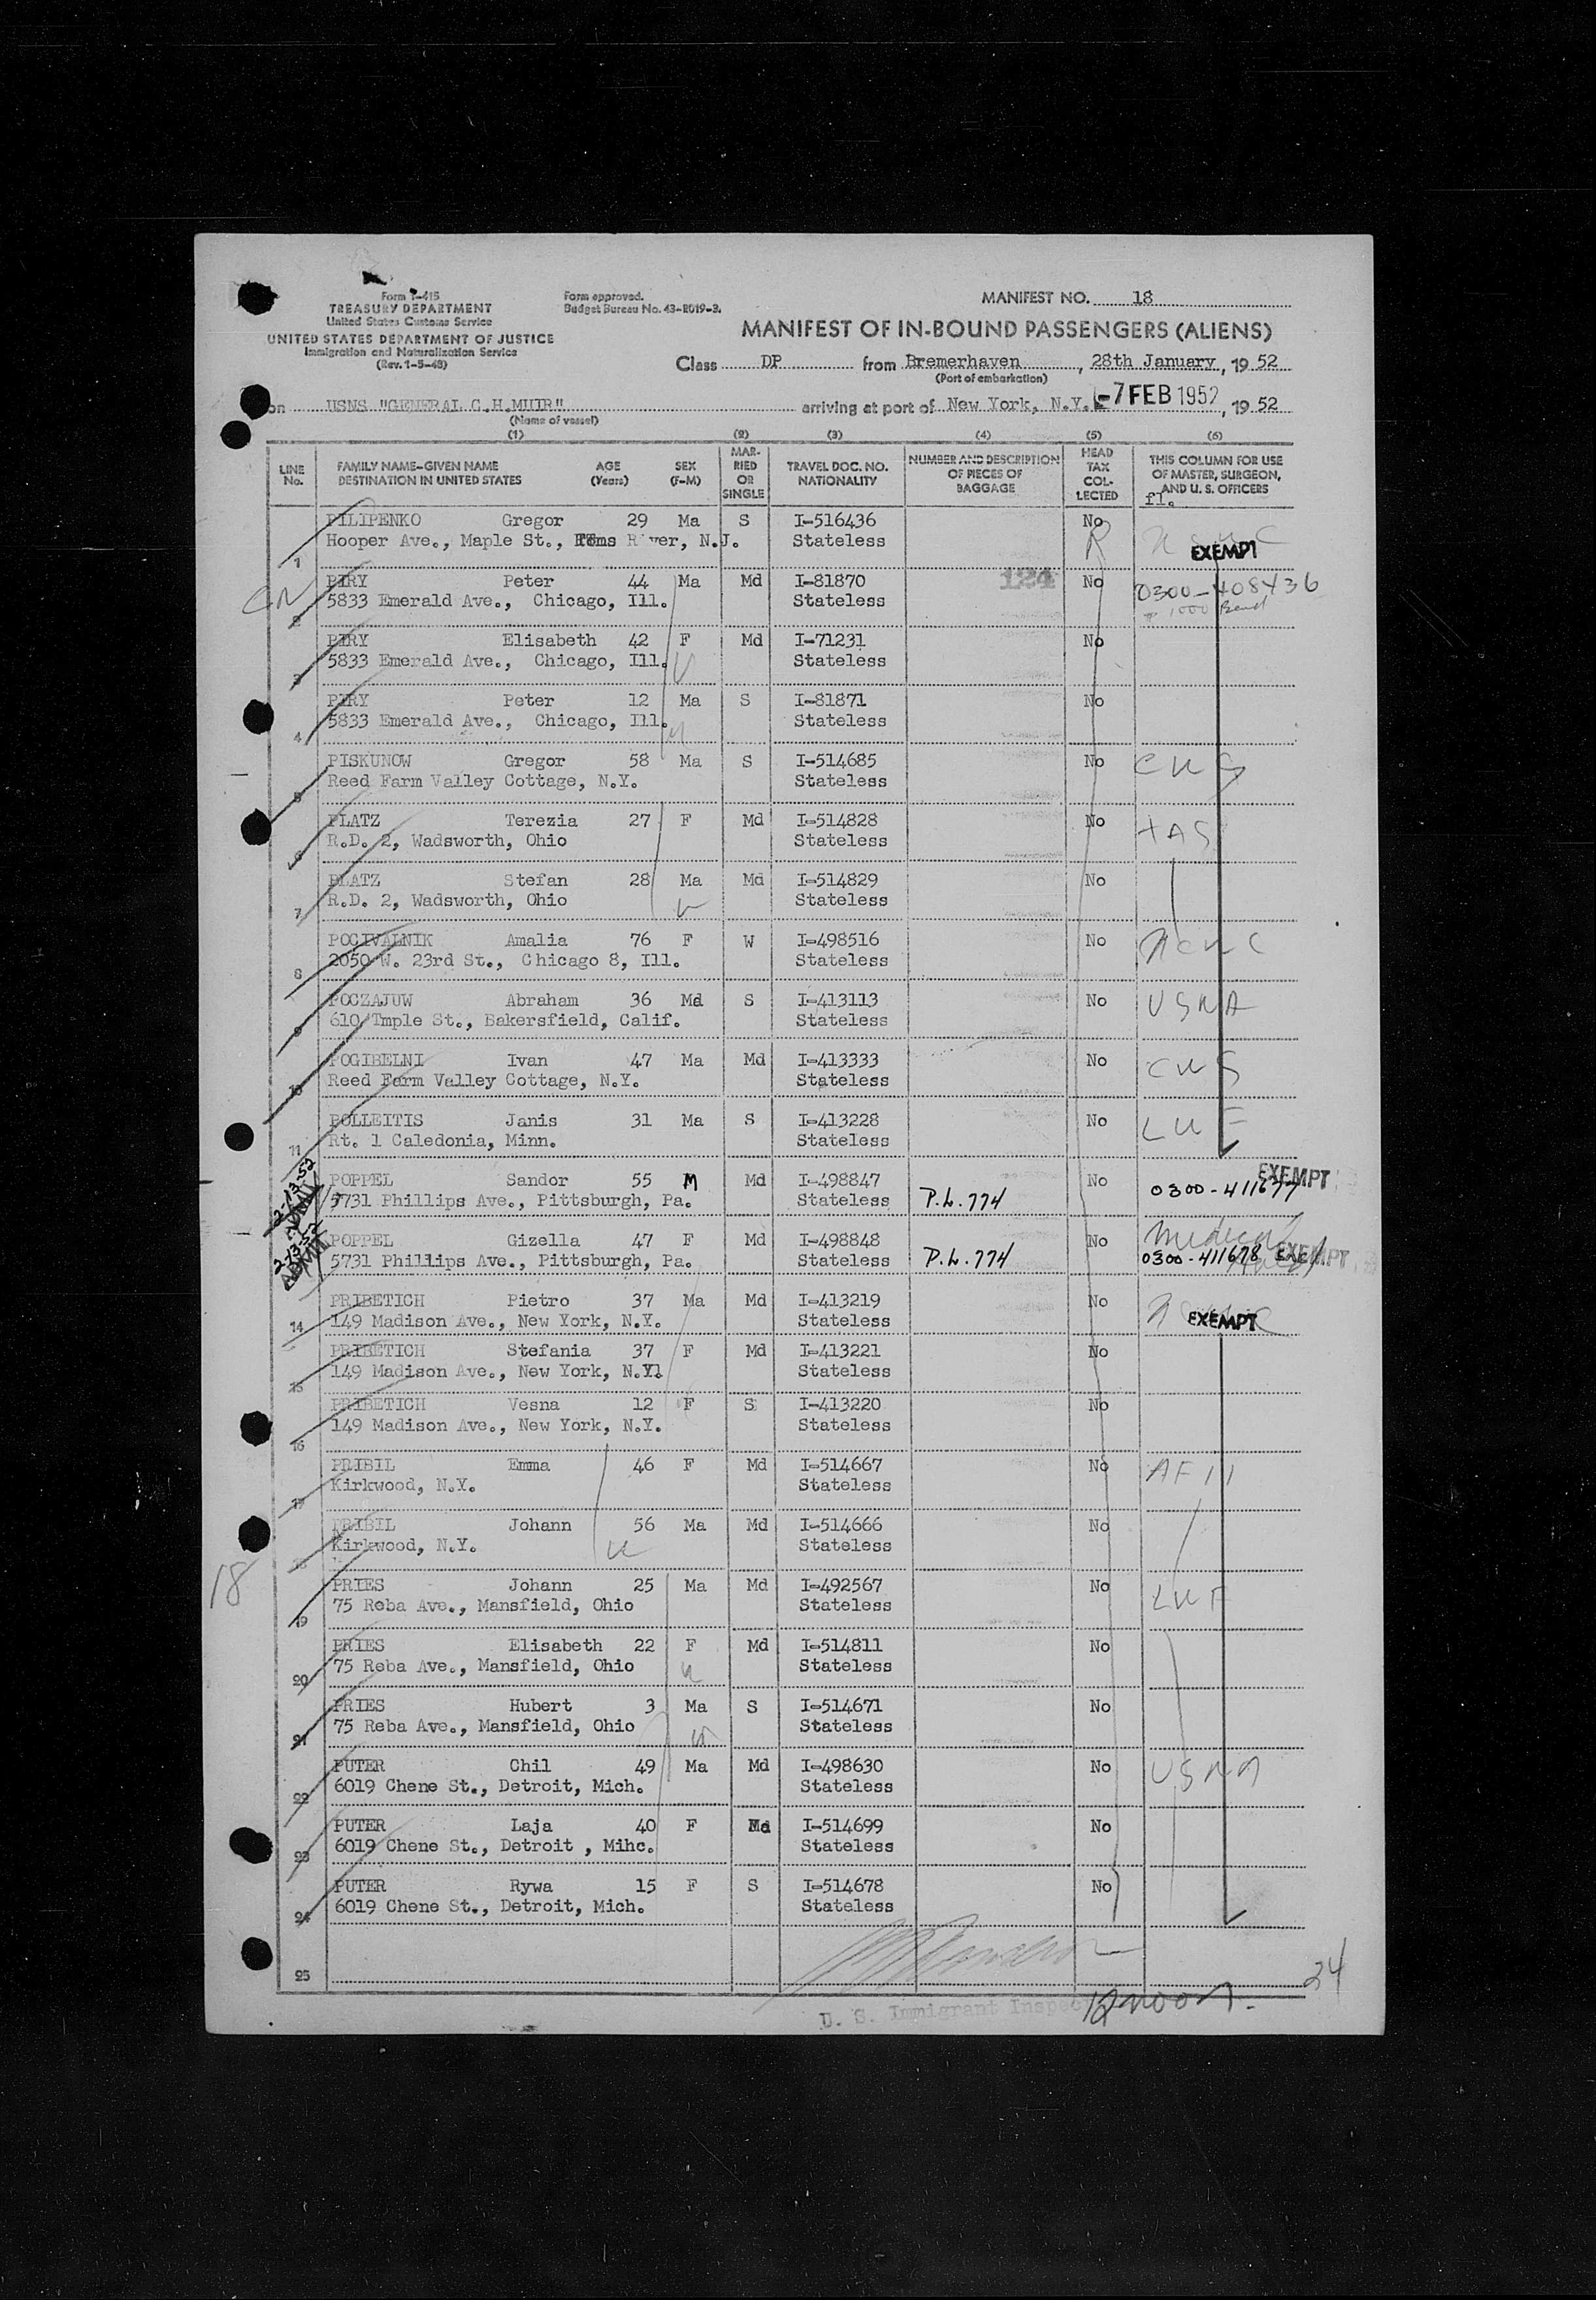 Form I-415
TREASURY DEPARTMENT
United States Customs Service
UNITED STATES DEPARTMENT OF JUSTICE
Immigration and Naturalization Service
(Rev. 1-5-48)
Form approved.
Budget Bureau No. 43-R019-3.
MANIFEST NO. 18
MANIFEST OF IN-BOUND PASSENGERS (ALIENS)
Class DP from Bremerhaven, 28th January, 19 52
(Port of embarkation)
on USNS "GENERAL C.H.MUIR" arriving at port of New York, N.Y. -7 FEB 1952, 19 52
(Name of vessel)
(1) (2) (3) (4) (5) (6)
LINE No. FAMILY NAME-GIVEN NAME DESTINATION IN UNITED STATES AGE (Years) SEX (F-M) MARRIED OR SINGLE TRAVEL DOC. NO. NATIONALITY NUMBER AND DESCRIPTION OF PIECES OF BAGGAGE HEAD TAX COLLECTED THIS COLUMN FOR USE OF MASTER, SURGEON, AND U. S. OFFICERS
fl.
PILIPENKO Gregor 29 Ma S I-516436 No
1 Hooper Ave., Maple St., Toms River, N.J. Stateless EXEMPT
PIRY Peter 44 Ma Md I-81870 124 No 0300-408436
2 5833 Emerald Ave., Chicago, Ill. Stateless 1000 Bend
PIRY Elisabeth 42 F Md I-71231 No
3 5833 Emerald Ave., Chicago, Ill. Stateless
PIRY Peter 12 Ma S I-81871 No
4 5833 Emerald Ave., Chicago, Ill. Stateless
PISKUNOW Gregor 58 Ma S I-514685 No CWS
5 Reed Farm Valley Cottage, N.Y. Stateless
PLATZ Terezia 27 F Md I-514828 No TAS
6 R.D. 2, Wadsworth, Ohio Stateless
PLATZ Stefan 28 Ma Md I-514829 No
7 R.D. 2, Wadsworth, Ohio Stateless
POCIVALNIK Amalia 76 F W I-498516 No NCWC
8 2050 W. 23rd St., Chicago 8, Ill. Stateless
POCZAJUW Abraham 36 Md S I-413113 No USNA
9 610 Tmple St., Bakersfield, Calif. Stateless
POGIBELNI Ivan 47 Ma Md I-413333 No CWS
10 Reed Farm Valley Cottage, N.Y. Stateless
POLLEITIS Janis 31 Ma S I-413228 No LWF
11 Rt. 1 Caledonia, Minn. Stateless
2-13-52
POPPEL Sandor 55 M Md I-498847 No EXEMPT
5731 Phillips Ave., Pittsburgh, Pa. Stateless P.L.774 0300-411677
2-13-52
POPPEL Gizella 47 F Md I-498848 No Medical
5731 Phillips Ave., Pittsburgh, Pa. Stateless P.L.774 0300-411678 EXEMPT
PRIBETICH Pietro 37 Ma Md I-413219 No
14 149 Madison Ave., New York, N.Y. Stateless EXEMPT
PRIBETICH Stefania 37 F Md I-413221 No
15 149 Madison Ave., New York, N.Yl Stateless
PRIBETICH Vesna 12 F S I-413220 No
16 149 Madison Ave., New York, N.Y. Stateless
PRIBIL Emma 46 F Md I-514667 No
17 Kirkwood, N.Y. Stateless
PRIBIL Johann 56 Ma Md I-514666 No
18 Kirkwood, N.Y. Stateless
18
PRIES Johann 25 Ma Md I-492567 No LWF
19 75 Reba Ave., Mansfield, Ohio Stateless
PRIES Elisabeth 22 F Md I-514811 No
20 75 Reba Ave., Mansfield, Ohio Stateless
PRIES Hubert 3 Ma S I-514671 No
21 75 Reba Ave., Mansfield, Ohio Stateless
PUTER Chil 49 Ma Md I-498630 No USNA
22 6019 Chene St., Detroit, Mich. Stateless
PUTER Laja 40 F Md I-514699 No
23 6019 Chene St., Detroit , Mihc. Stateless
PUTER Rywa 15 F S I-514678 No
24 6019 Chene St., Detroit, Mich. Stateless
25
24
U. S. Immigrant Inspector